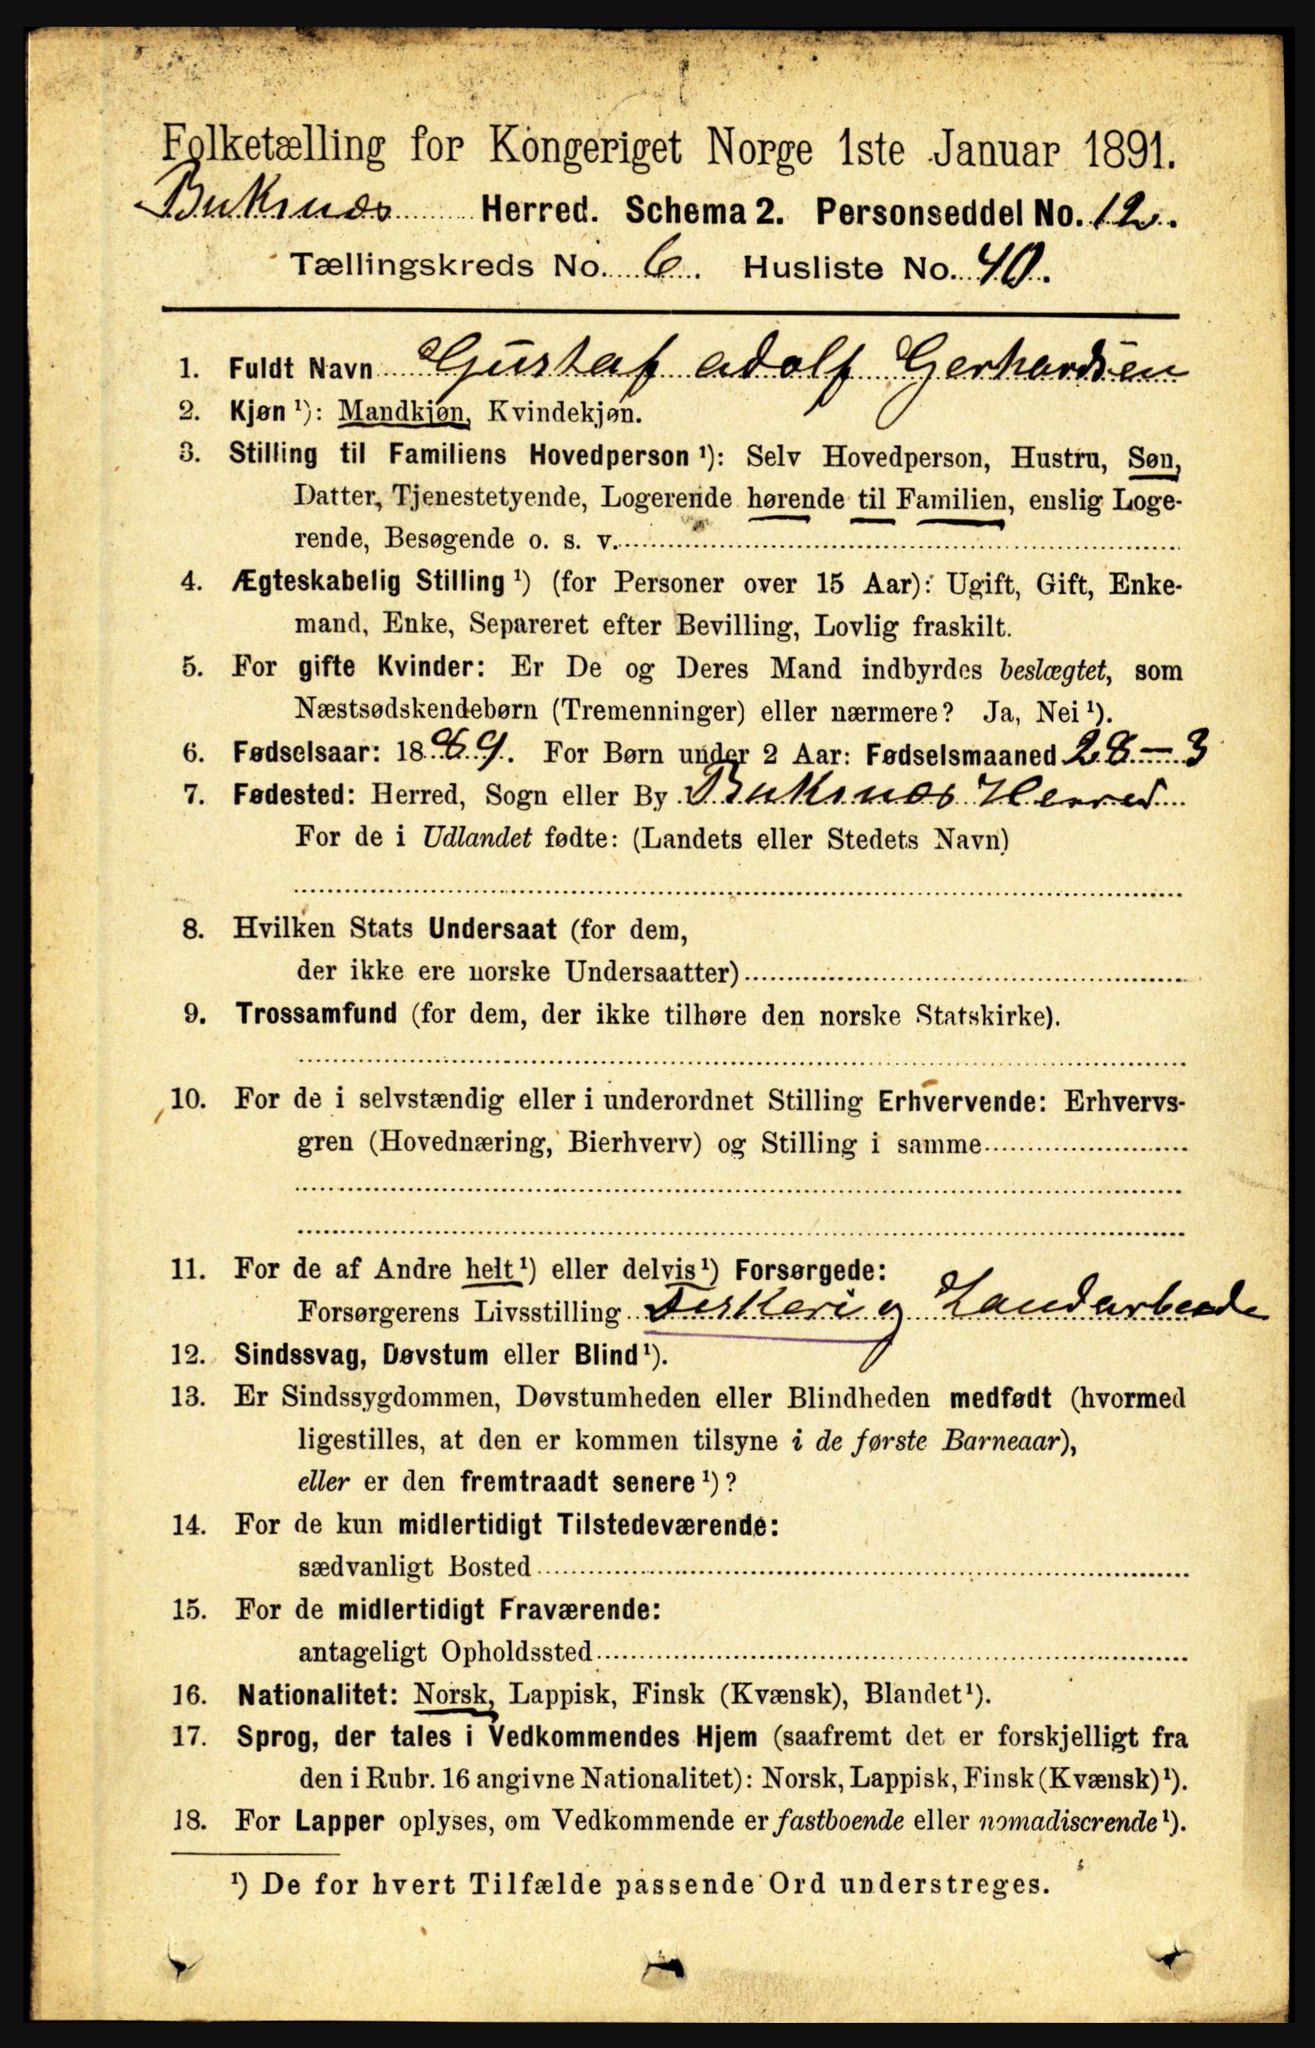 Folketælling for Kongeriget Norge 1ste Januar 1891.
Buksnæs Herred. Schema 2. Personseddel No. 12.
Tællingskreds No. 6. Husliste No. 40.
1. Fuldt Navn Gustaf Adolf Gerhardsen
2. Kjøn ¹): Mandkjøn, Kvindekjøn.
3. Stilling til Familiens Hovedperson ¹): Selv Hovedperson, Hustru, Søn,
Datter, Tjenestetyende, Logerende hørende til Familien, enslig Loge-
rende, Besøgende o. s. v.
4. Ægteskabelig Stilling ¹) (for Personer over 15 Aar): Ugift, Gift, Enke-
mand, Enke, Separeret efter Bevilling, Lovlig fraskilt.
5. For gifte Kvinder: Er De og Deres Mand indbyrdes beslægtet, som
Næstsødskendebørn (Tremenninger) eller nærmere? Ja, Nei ¹).
6. Fødselsaar: 1889. For Børn under 2 Aar: Fødselsmaaned 28-3
7. Fødested: Herred, Sogn eller By Buksnæs Herred
For de i Udlandet fødte: (Landets eller Stedets Navn)
8. Hvilken Stats Undersaat (for dem,
der ikke ere norske Undersaatter)
9. Trossamfund (for dem, der ikke tilhøre den norske Statskirke).
10. For de i selvstændig eller i underordnet Stilling Erhvervende: Erhvervs-
gren (Hovednæring, Bierhverv) og Stilling i samme
11. For de af Andre helt ¹) eller delvis ¹) Forsørgede:
Forsørgerens Livsstilling Fiskeri og Landarbeide
12. Sindssvag, Døvstum eller Blind ¹).
13. Er Sindssygdommen, Døvstumheden eller Blindheden medfødt (hvormed
ligestilles, at den er kommen tilsyne i de første Barneaar),
eller er den fremtraadt senere ¹)?
14. For de kun midlertidigt Tilstedeværende:
sædvanligt Bosted
15. For de midlertidigt Fraværende:
antageligt Opholdssted
16. Nationalitet: Norsk, Lappisk, Finsk (Kvænsk), Blandet ¹).
17. Sprog, der tales i Vedkommendes Hjem (saafremt det er forskjelligt fra
den i Rubr. 16 angivne Nationalitet): Norsk, Lappisk, Finsk (Kvænsk) ¹).
18. For Lapper oplyses, om Vedkommende er fastboende eller nomadiserende ¹).
¹) De for hvert Tilfælde passende Ord understreges.